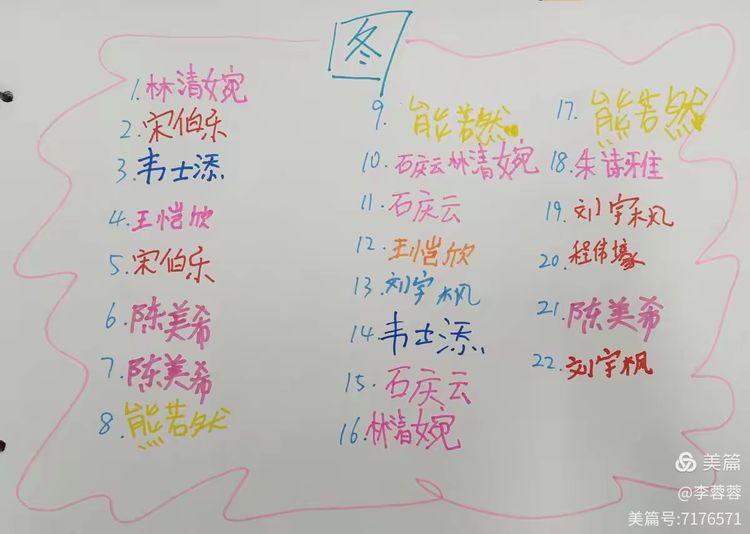 冬
1.林清婉
2.宋伯乐
3.韦士添
4.王恺欣
5.宋伯乐
6.陈美希
7.陈美希
8.熊若然
9.熊若然
10.石庆云林清婉
11.石庆云
12.王恺欣
13.刘宇枫
14.韦士添
15.石庆云
16.林清婉
17.熊若然
18.朱诗雅
19.刘宇枫
20.程伟壕
21.陈美希
22.刘宇枫
美篇
@李蓉蓉
美篇号:7176571